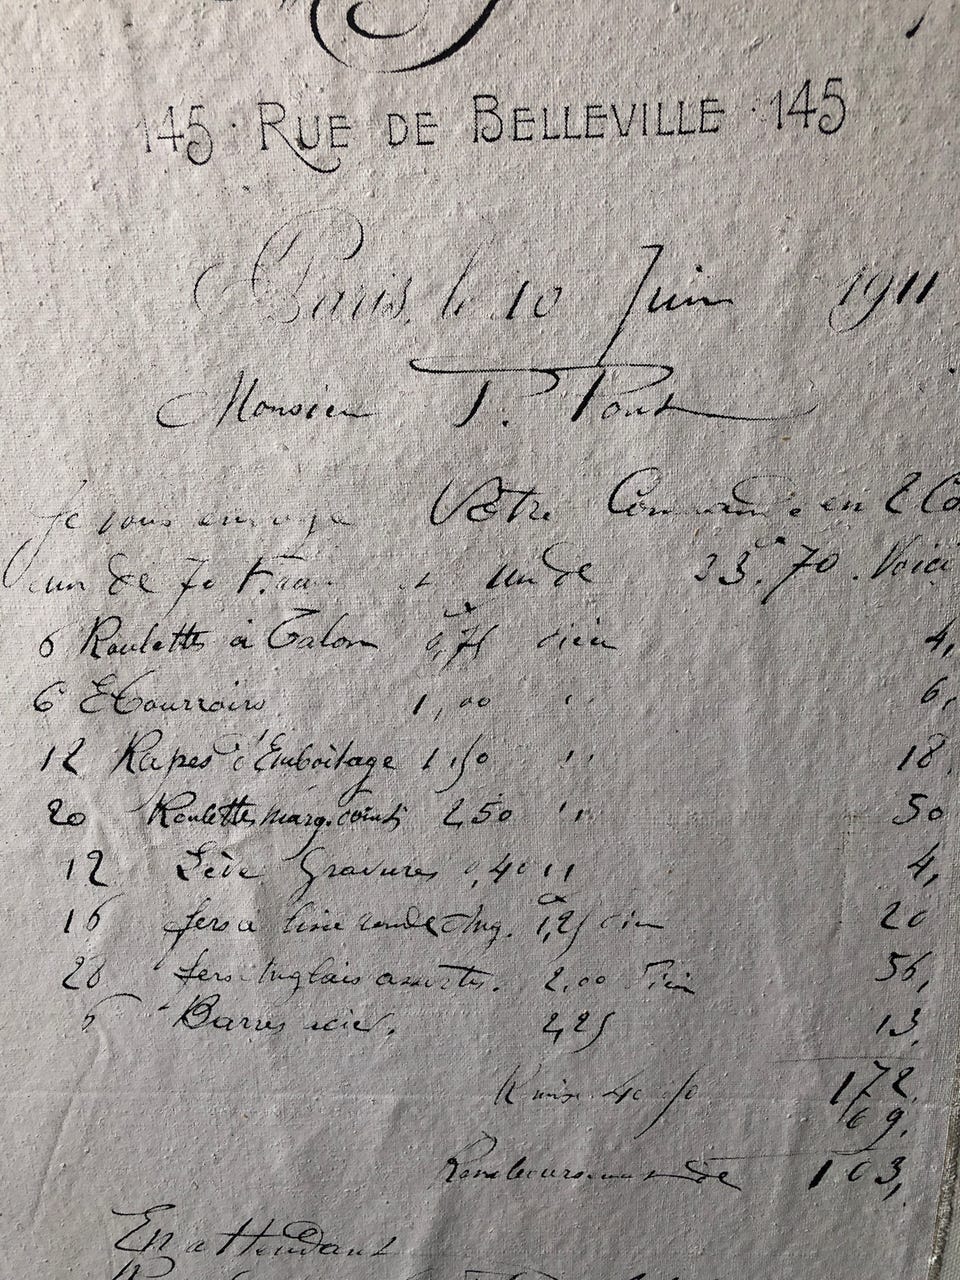 145 · RUE DE BELLEVILLE · 145
Paris, le 10 Juin 1911
Monsieur P. Pont
Je vous envoye Votre Commande en 2 Co
un de 70 Fran et un de 33.70. Voici
6 Roulettes à Talon 0,75 pièce 4,
6 Ebourroirs 1,00 '' 6,
12 Rapes d'Emboitage 1,50 '' 18,
20 Roulettes marq. points 2,50 '' 50
12 Lève Gravures 0,40 11 4,
16 fers à lisse ronde Ang. 1,25 pièce 20
28 fers Anglais assortis. 2,00 Pièce 56,
6 Barres acier. 2,25 13,
Remise 40 % 172,
69,
Remboursement de 103,
En attendant